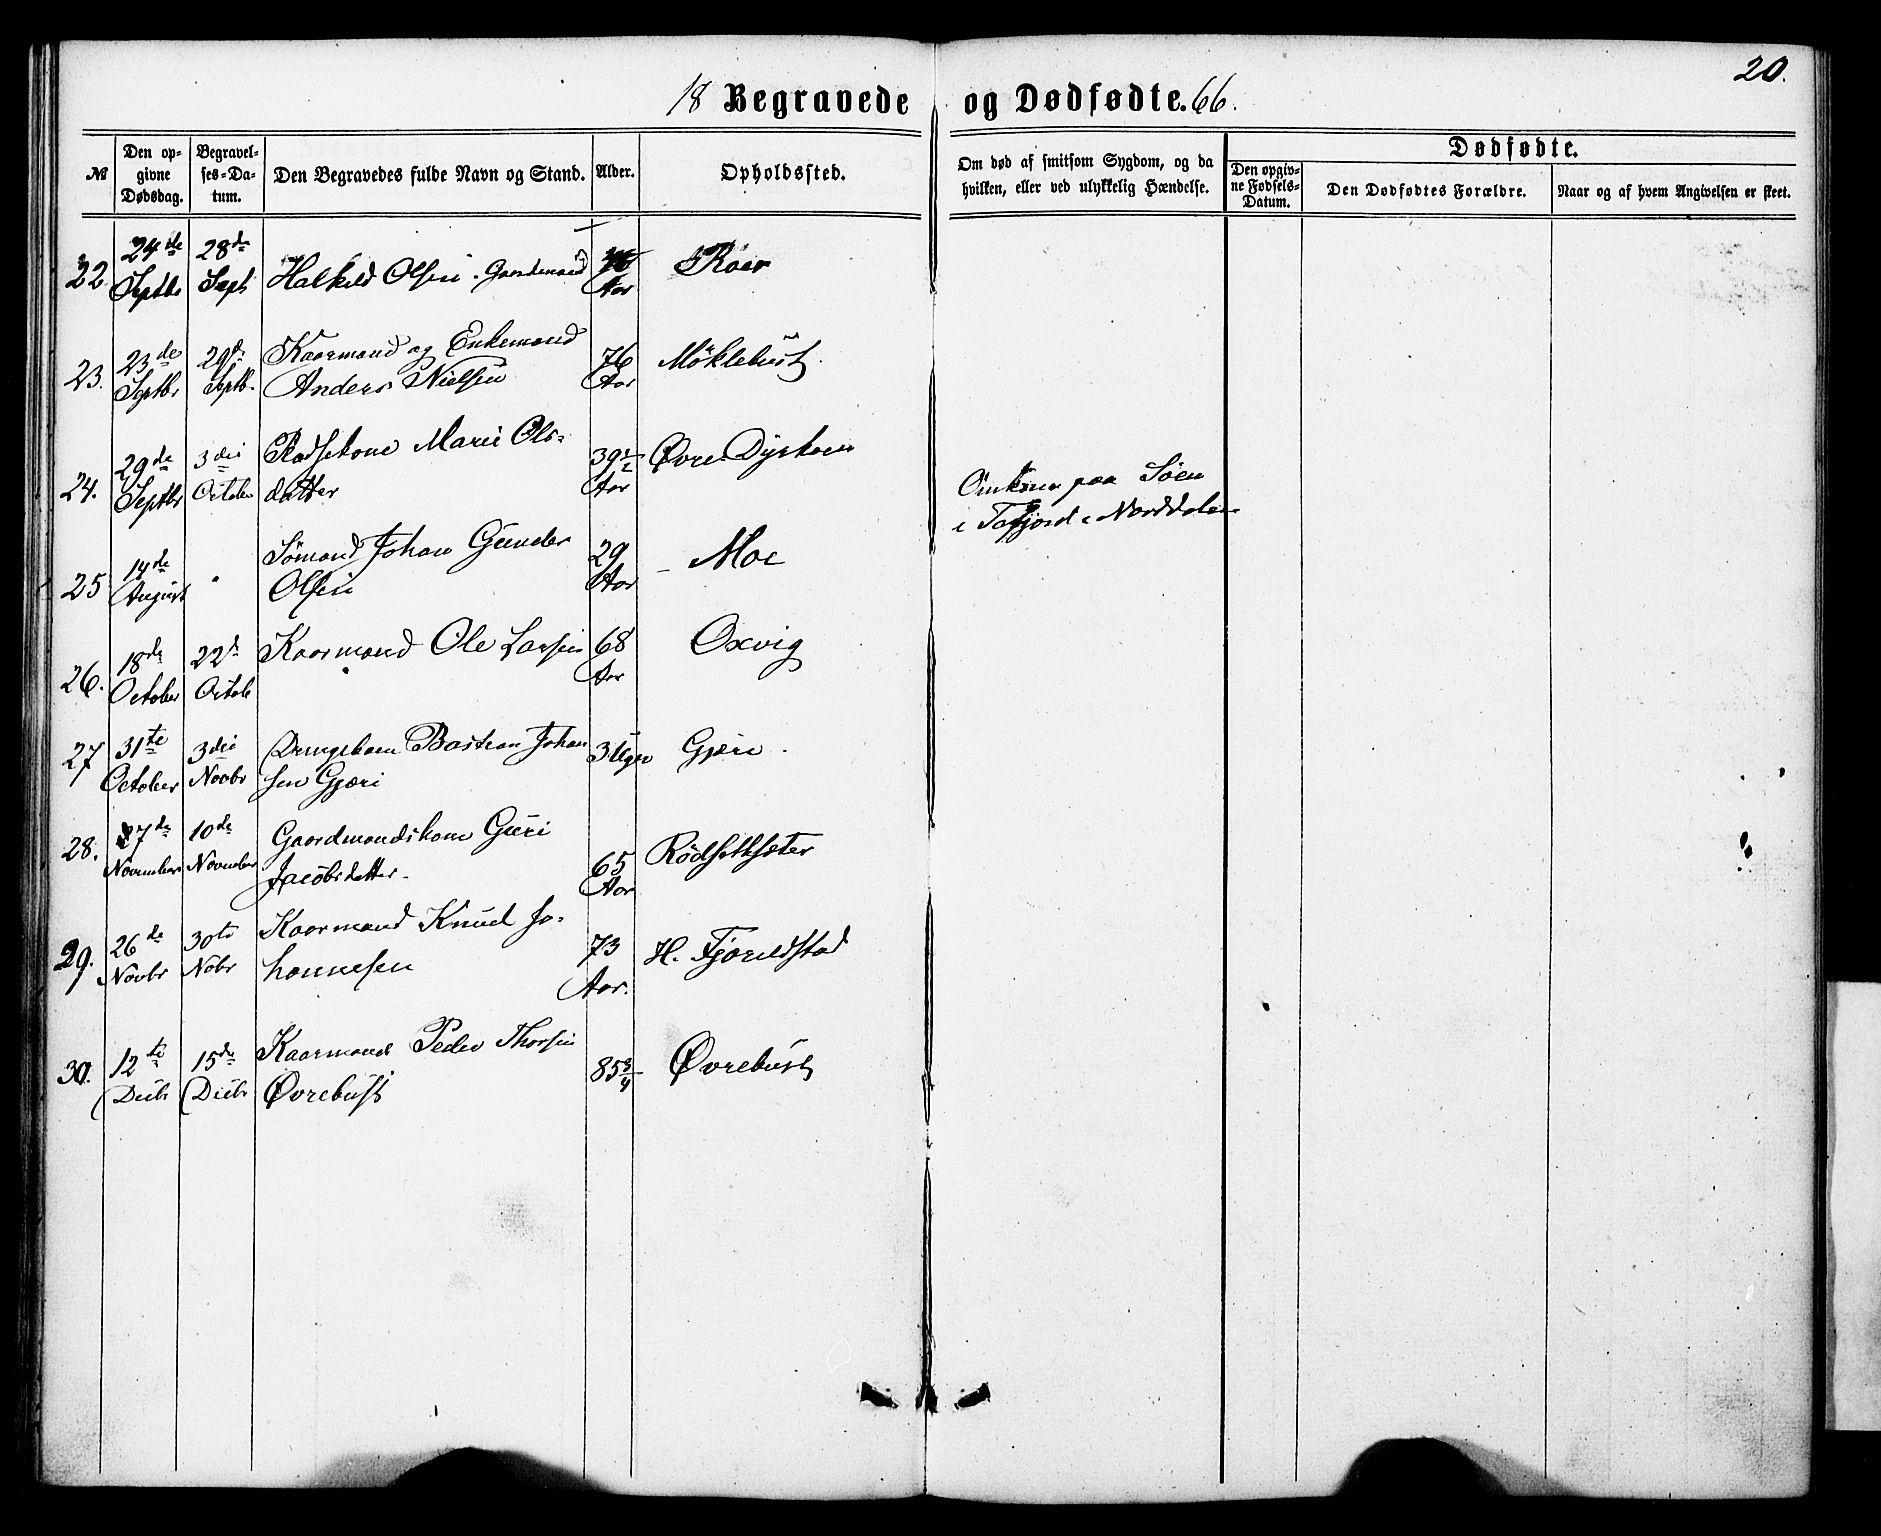 20.
18 Begravede og Dødfødte. 66.
№
Den op-
givne
Dødsdag.
Begravel-
ses-Da-
tum.
Den Begravedes fulde Navn og Stand.
Alder.
Opholdssted.
Om død af smitsom Sygdom, og da
hvilken, eller ved ulykkelig Hændelse.
Dødfødte.
Den opgiv-
ne Fødsels-
Datum.
Den Dødfødtes Forældre.
Naar og af hvem Angivelsen er skeet.
22. 24de 28de
Septbr Sept Halkild Olsen. Gaardmand Aar
23. 23de 29de Kaarmand og Enkemand 76 Møklebust.
Septbr Septb. Anders Nielsen Aar
24. 29de 3die Marie Ols- 39½ Øvre
Septbr October datter Aar
25 14de Sømand Johan Gunder 29 Moe
August " Olsen Aar
Omkom paa Søen
i Tafjord i Norddalen
26. 18de 22de Kaarmand Ole Larsen 68 Oxvig
October Octob Aar
27 31te 3die Drengebarn Bastian Johan 3 Uger Gjære.
October Novbr sen Gjære
28. 7de 10de Gaardmandskone Guri Rødsetsæter
November November Jacobsdatter. 65 Aar
29. 26de 30te Kaarmand Knud Jo- 73 H. Fjørdstad
Novbr Nobr hannesen Aar.
30. 12te 15de Kaarmand Peder Thorsen 85¾ Øvrebust
Decbr Decbr Øvrebust